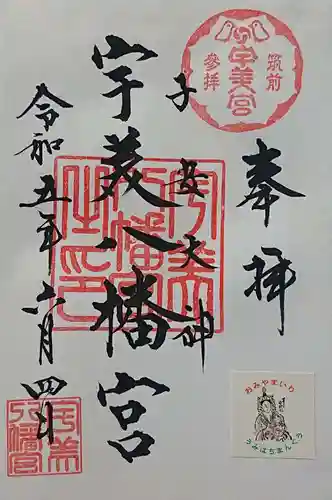 奉拝
筑前
宇美宮
參拝
子安大神
宇美八幡宮
宇美八幡宮之印
令和五年六月四日
宇美八幡宮
おみやまいり
うみはちまんぐう